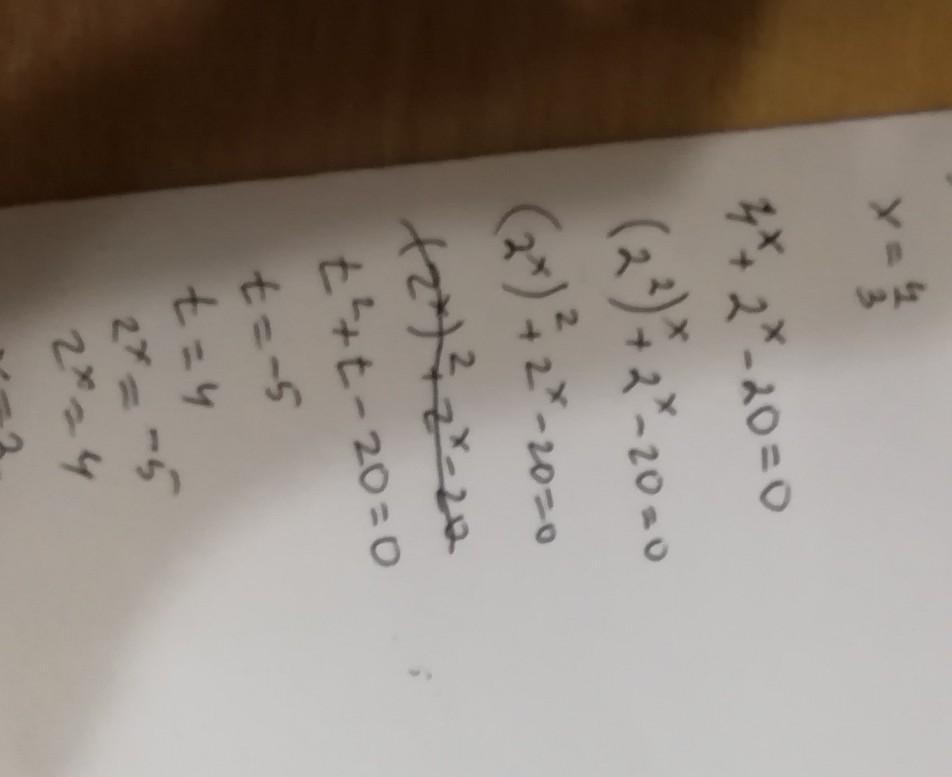 x = 4/3
4^x + 2^x - 20 = 0
(2^2)^x + 2^x - 20 = 0
(2^x)^2 + 2^x - 20 = 0
(2^x)^2 + 2^x - 20
t^2 + t - 20 = 0
t = -5
t = 4
2^x = -5
2^x = 4
x = 2